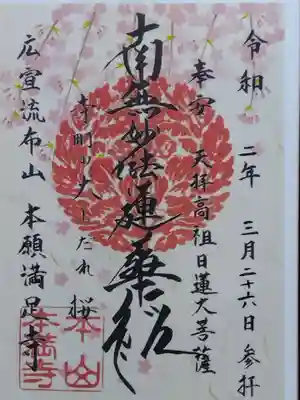 令和二年三月二十六日参拝
奉安 天拝高祖日蓮大菩薩
南無妙法蓮華経
寺町の大しだれ桜
広宣流布山 本願満足寺
本山
本満寺